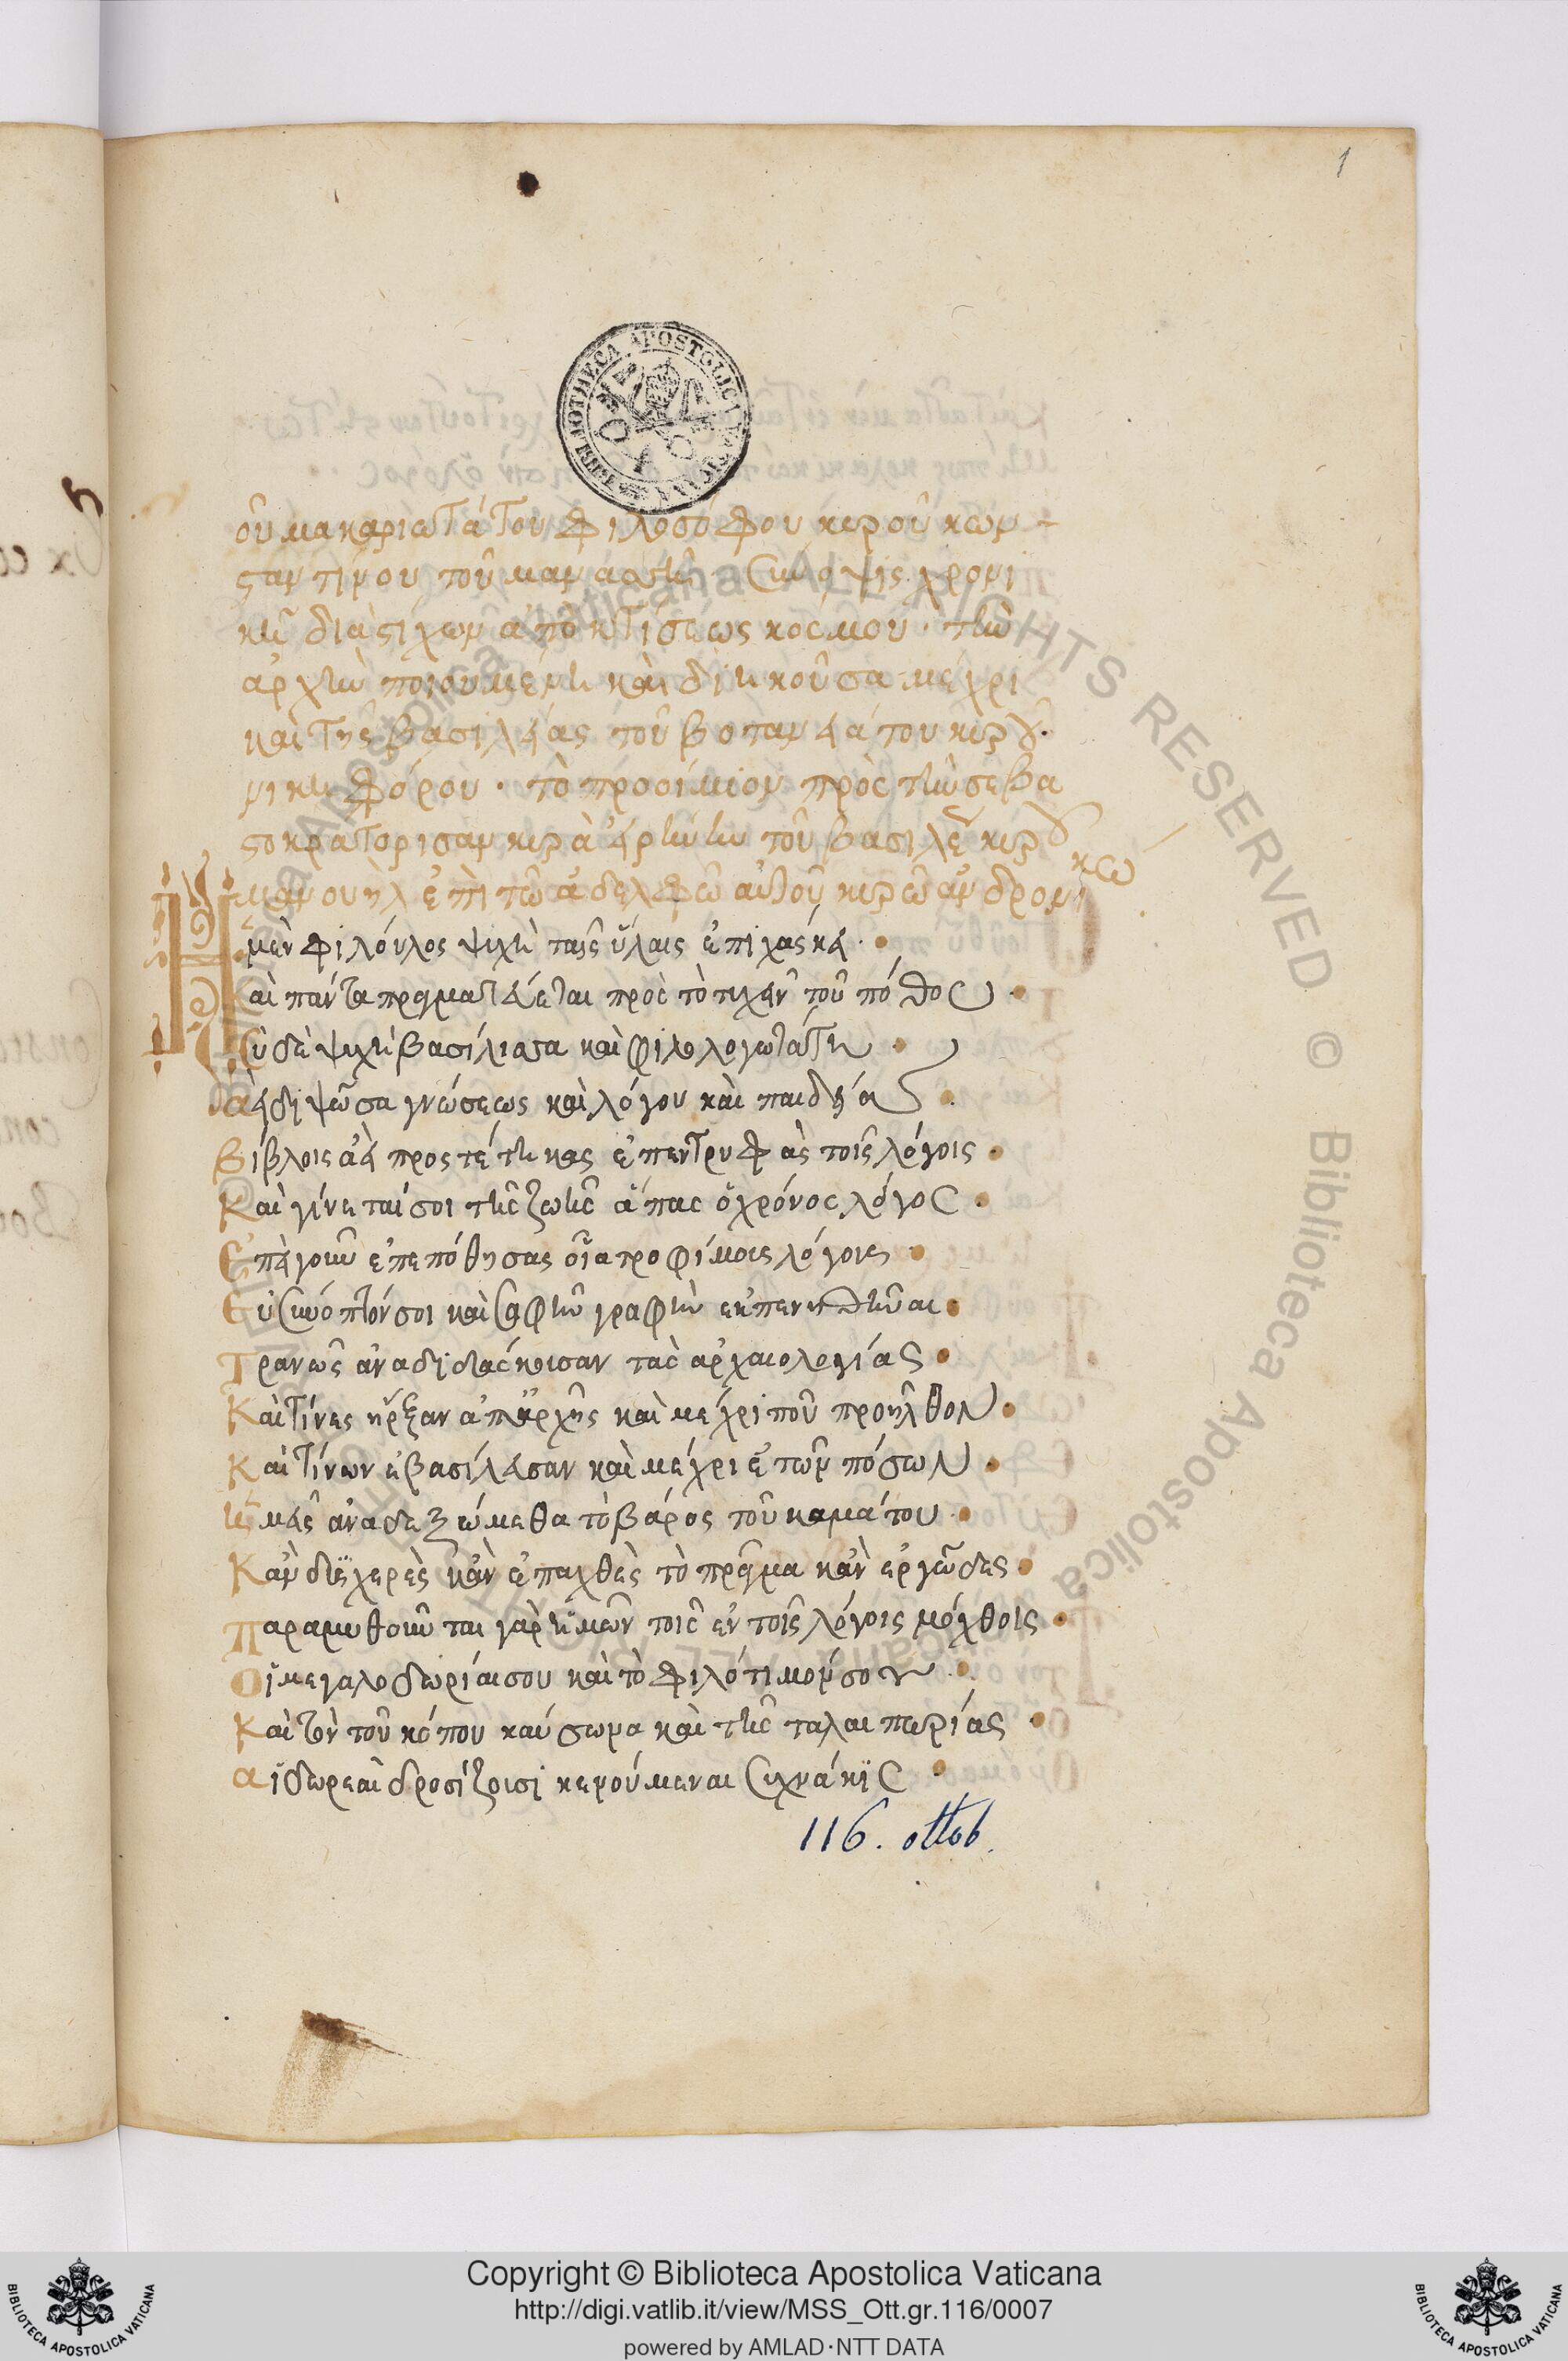 1
οῦ μακαριωτάτου φιλοσόφου κυροῦ κων
σταντίνου τοῦ μανασσῆ Σύνοψις χρονι
κὴ διὰ στίχων ἀπὸ κτίσεως κόσμου · τὴν
ἀρχὴν ποιουμένη καὶ διήκουσα μέχρι
καὶ τῆς βασιλείας τοῦ βοτανειάτου κυροῦ ·
νικηφόρου · τὸ προοίμιον πρὸς τὴν σεβα
στοκρατόρισαν κυρὰ εἰρήνην τοῦ βασιλέως κυροῦ
μανουὴλ ἐπὶ τῶ ἀδελφῶ αὐτοῦ κυρῶ ἀνδρονίκω
Η μὲν φιλόυλος ψυχὴ ταῖς ὕλαις ἐπιχάσκει ·
Καὶ πάντα πραγματεύεται πρὸς τὸ τυχεῖν τοῦ πόθου ·
Σὺ δὲ ψυχὴ βασίλισσα καὶ φιλολογωτάτη ·
ἀεὶ διψῶσα γνώσεως καὶ λόγου καὶ παιδείας ·
Βίβλοις ἀεὶ προστέτηκας ἐπεντρυφᾶς τοῖς λόγοις ·
Καὶ γίνεταί σοι τῆς ζωῆς ἅπας ὁ χρόνος λόγος ·
Επεὶ γοῦν ἐπεπόθησας οἷα τροφίμοις λόγοις ·
Εὐσύνοπτόν σοι καὶ σαφῆν γραφὴν ἐκπενηθῆναι ·
Τρανῶς ἀναδιδάσκοισαν τὰς ἀρχαιολογίας ·
Καὶ τίνες ἦρξαν ἀπ' ἀρχῆς καὶ μέχρι ποῦ προῆλθον ·
Καὶ τίνων ἐβασίλευσαν καὶ μέχρι ἐτῶν πόσων ·
ἡμεῖς ἀναδεξώμεθα τὸ βάρος τοῦ καμάτου ·
Κἂν δυσχερὲς κἂν ἐπαχθὲς τὸ πρᾶγμα κἂν ἐργῶδες ·
Παραμυθοῦνται γὰρ ἡμῶν τοῖς ἐν τοῖς λόγοις μόχθοις ·
Οἱ μεγαλοδωρίαι σου καὶ τὸ φιλότιμόν σου ·
Καὶ τὸν τοῦ κόπου καύσωνα καὶ τῆς ταλαιπωρίας ·
αἱ δωρεαὶ δροσίζοισι κενούμεναι συχνάκις ·
116. ottob.
Copyright © Biblioteca Apostolica Vaticana
http://digi.vatlib.it/view/MSS_Ott.gr.116/0007
powered by AMLAD·NTT DATA